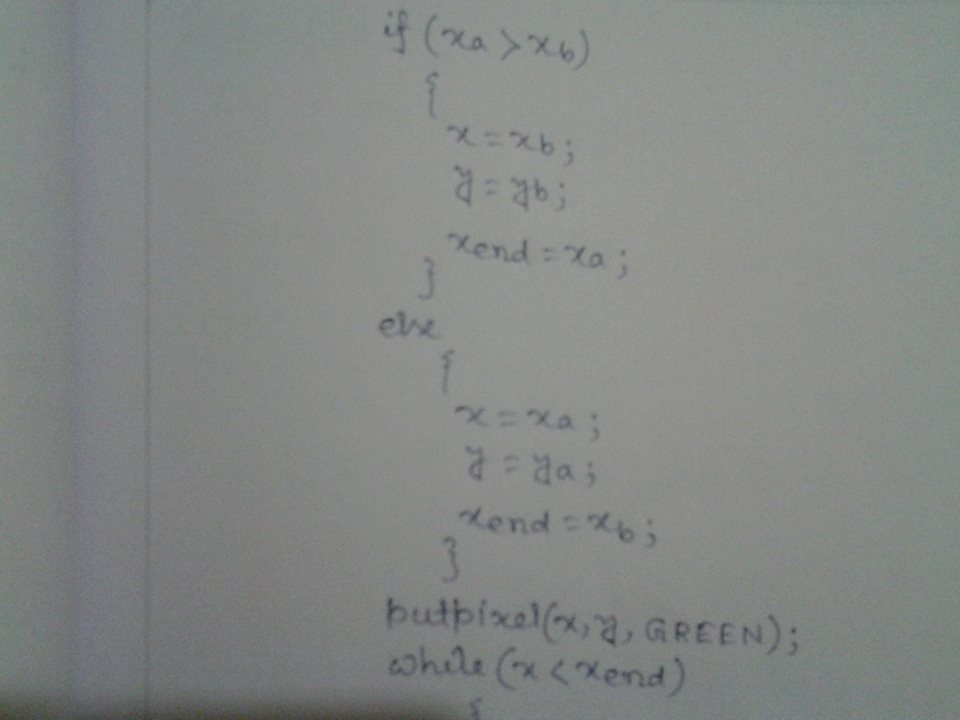 if (xa > xb)
{
x = xb;
y = yb;
xend = xa;
}
else
{
x = xa;
y = ya;
xend = xb;
}
putpixel(x, y, GREEN);
while (x < xend)
{